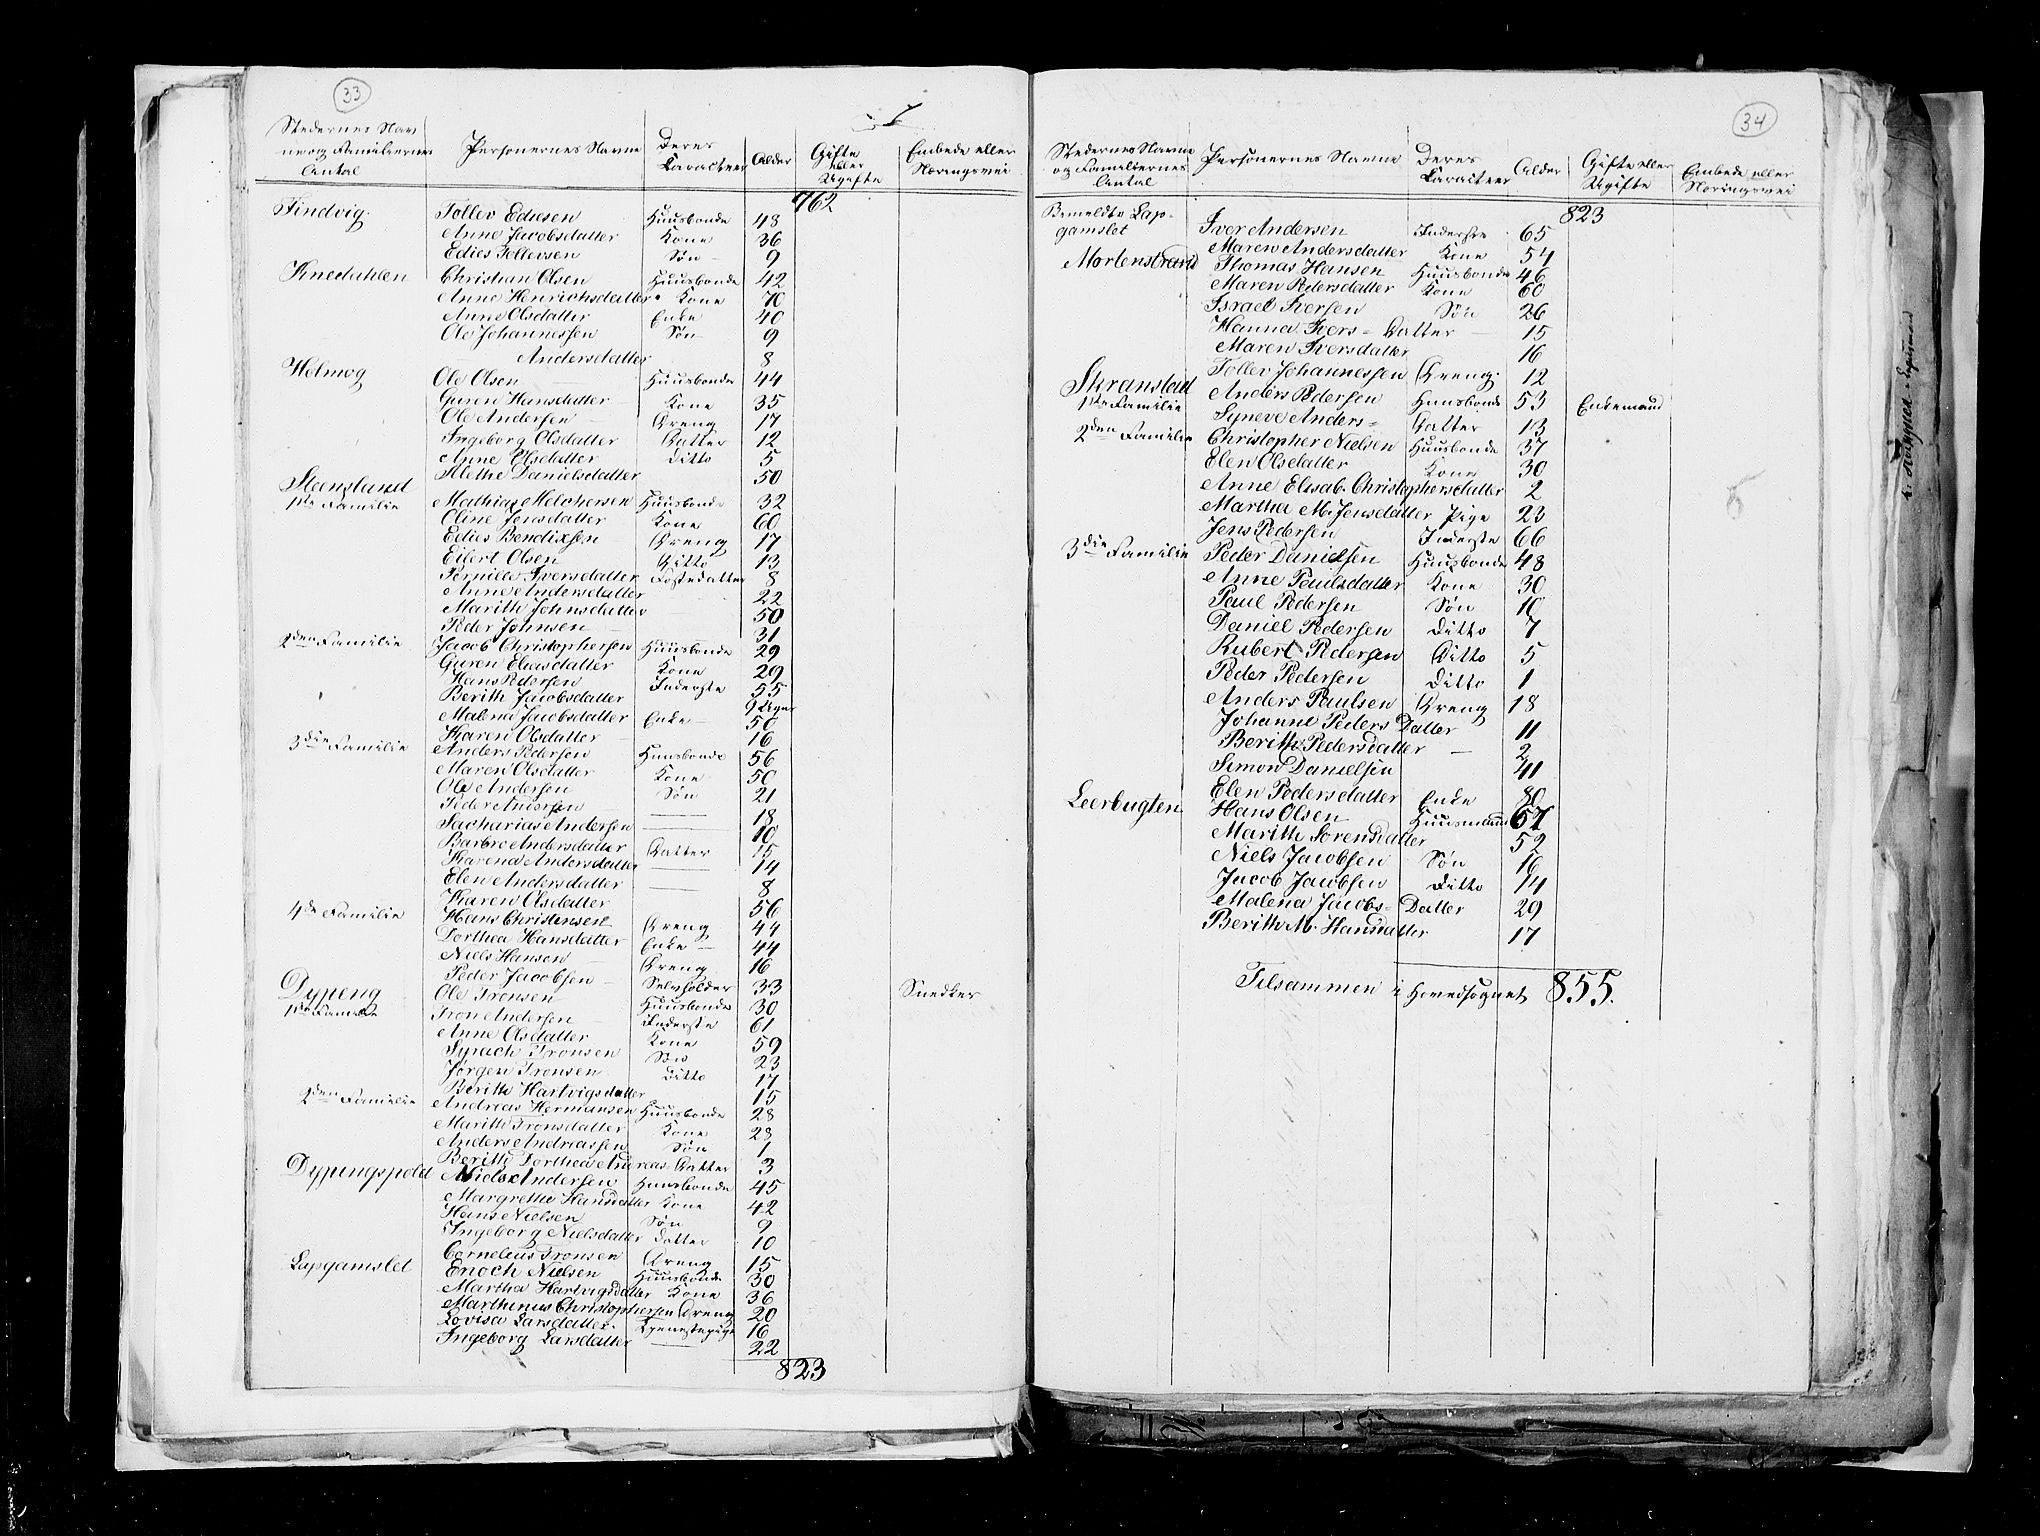 33
Stedernes Nav
ne og Familiernes
Antal
Personernes Navne
Deres
Caracteer
Alder
Gifte
eller
Ugifte
Embede eller
Næringsvei
762
Findvig. Tollev Ediesen Huusbonde 48
Anne Jacobsdatter Kone 36
Edies Tollevsen Søn 9
Knedahlen Christian Olsen Huusbonde 42
Anne Henrichsdatter Kone 70
Anne Olsdatter Enke 40
Ole Johannessen Søn 9
Andersdatter 8
Helmog Ole Olsen Huusbonde 44
Guren Hansdatter Kone 35
Ole Andersen Dreng 17
Ingeborg Olsdatter Datter 12
Anne Olsdatter Ditto 5
Alethe Danielsdatter 50
Steensland
1ste Familie Mathias Melchersen Huusbonde 32
Oline Jensdatter Kone 60
Edies Bendixsen Dreng 17
Eilert Olsen Ditto 13
Pernille Iversdatter Fostedatter 8
Anne Andersdatter 22
Marith Johnsdatter 50
Peder Johnsen 31
2den Familie Jacob Christophersen Huusbonde 29
Guren Eliasdatter Kone 29
Hans Pedersen Inderste 55
Berith Jacobsdatter 9 Uger
Malena Jacobsdatter Enke 50
Karen Olsdatter 16
3die Familie Anders Pedersen Huusbonde 56
Maren Olsdatter Kone 50
Ole Andersen Søn 21
Peder Andersen 18
Sacharias Andersen 10
Barbro Andersdatter Datter 15
Karena Andersdatter 14
Elen Andersdatter 8
Karen Olsdatter 56
4de Familie Hans Christensen Dreng 44
Dorthea Hansdatter Enke 44
Niels Hansen Dreng 16
Peder Jacobsen Selvholder 33 Snedker
Dypeng
1ste Familie Ole Tronsen Huusbonde 30
Tron Andersen Inderste 61
Anne Olsdatter Kone 59
Syrach Tronsen Søn 23
Jørgen Tronsen Ditto 17
Berith Hartvigsdatter 15
2den Familie Andreas Hermansen Huusbonde 28
Marith Tronsdatter Kone 28
Anders Andreassen Søn 1
Berith Dorthea Andreas Datter 3
Dypingspold Niels Andersen Huusbonde 45
Margrethe Hansdatter Kone 42
Hans Nielsen Søn 9
Ingeborg Nielsdatter Datter 10
Cornelius Tronsen Dreng 15
Lapgamslet Enoch Nielsen Huusbonde 30
Martha Hartvigsdatter Kone 36
Marthinus Christophersen Dreng 20
Lovisa Larsdatter Tjenestepige 16
Ingeborg Larsdatter 22
823
34
Stedernes Navne
og Familiernes
Antal
Personernes Navne
Deres
Caracteer
Alder
Gifte eller
Ugifte
Embede eller
Næringsvei
823
Bemeldte Lap-
gamslet Iver Andersen Inderste 65
Maren Andersdatter Kone 54
Mortenstrand Thomas Hansen Huusbonde 46
Maren Pedersdatter Kone 60
Israel Iversen Søn 26
Hanna Ivers= Datter 15
Maren Iversdatter 16
Tollev Johannessen Dreng. 12
Skranstad
1ste Familie Anders Pedersen Huusbonde 53 Enkemand
Syneve Anders= Datter 13
2den Familie Christopher Nielsen Huusbonde 37
Elen Olsdatter Kone 30
Anne Elisab. Christophersdatter 2
Martha M. Jensdatter Pige 23
Jens Pedersen Inderste 66
3die Familie Peder Danielsen Huusbonde 48
Anne Paulsdatter Kone 30
Paul Pedersen Søn 10
Daniel Pedersen Ditto 7
Rubert Pedersen Ditto 5
Peder Pedersen Ditto 1
Anders Paulsen Dreng 18
Johanne Peders Datter 11
Berith Pedersdatter 2
Simon Danielsen 41
Elen Pedersdatter Enke 80
Leerbugten Hans Olsen Huusmand 67
Marith Sorensdatter 52
Niels Jacobsen Søn 16
Jacob Jacobsen Ditto 14
Malena Jacobs= Datter 29
Berith M. Hansdatter 17
Tilsammen i Hovedsognet 855.